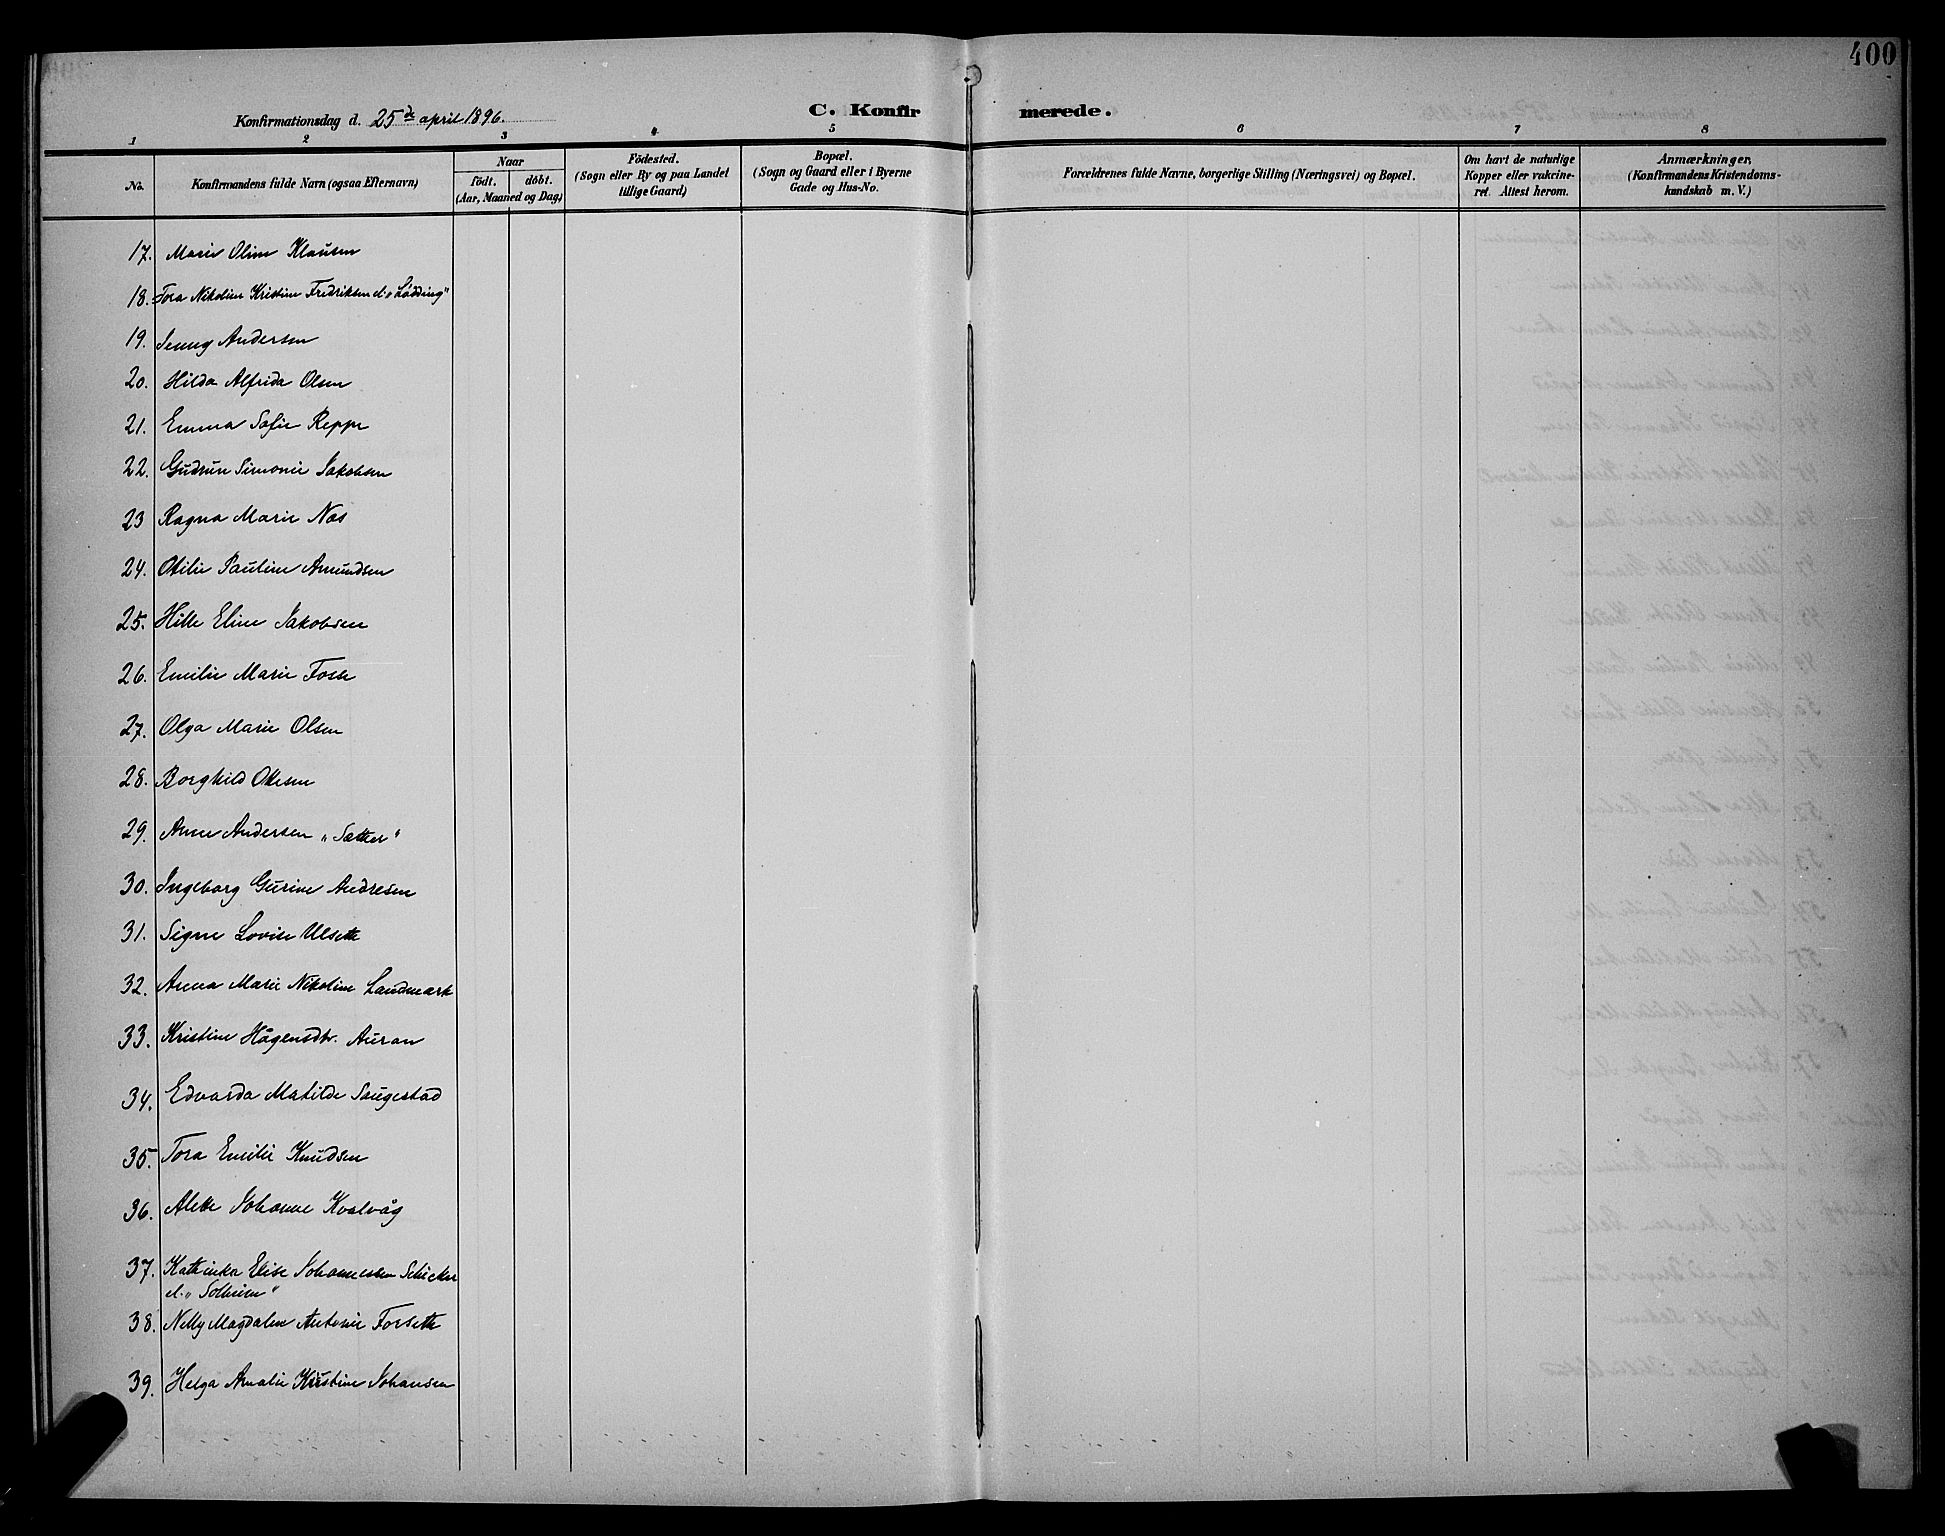 400
Konfirmationsdag d. 25de april 1896.
C. Konfirmerede.
1 2 3 4 5 6 7 8
No.
Konfirmandens fulde Navn (ogsaa Efternavn)
Naar
födt. döbt.
(Aar, Maaned og Dag)
Födested.
(Sogn eller By og paa Landet
tillige Gaard)
Bopæl.
(Sogn og Gaard eller i Byerne
Gade og Hus-No.
Forældrenes fulde Navne, borgerlige Stilling (Næringsvei) og Bopæl.
Om havt de naturlige
Kopper eller vakcine-
ret. Attest herom.
Anmærkninger,
(Konfirmandens Kristendoms-
kundskab m. V.)
17. Marie Oline Klausen
18. Tora Nikoline Kristine Fredriksen el. "Lödding"
19. Jenny Andersen
20. Hilda Alfrida Olsen
21. Emma Sofie Reppe
22. Gudrun Simonie Jakobsen
23 Ragna Marie Næs
24. Otilie Pauline Amundsen
25. Hille Eline Jakobsen
26. Emilie Marie Fosse
27. Olga Marie Olsen
28. Borghild Ottesen
29. Anne Andersen "Sætter"
30. Ingeborg Gurine Andresen
31. Signe Lovise Ulseth
32. Anna Marie Nikoline Landmark
33. Kristine Hågensdtr. Auran
34. Edvarda Matilde Saugestad
35. Tora Emilie Knudsen
36. Alette Johanne Kvalvåg
37. Kathinka Elise Johannessen
el. "Solheim"
38. Nelly Magdalene Antonie Forseth
39. Helga Amalie Kristine Johansen